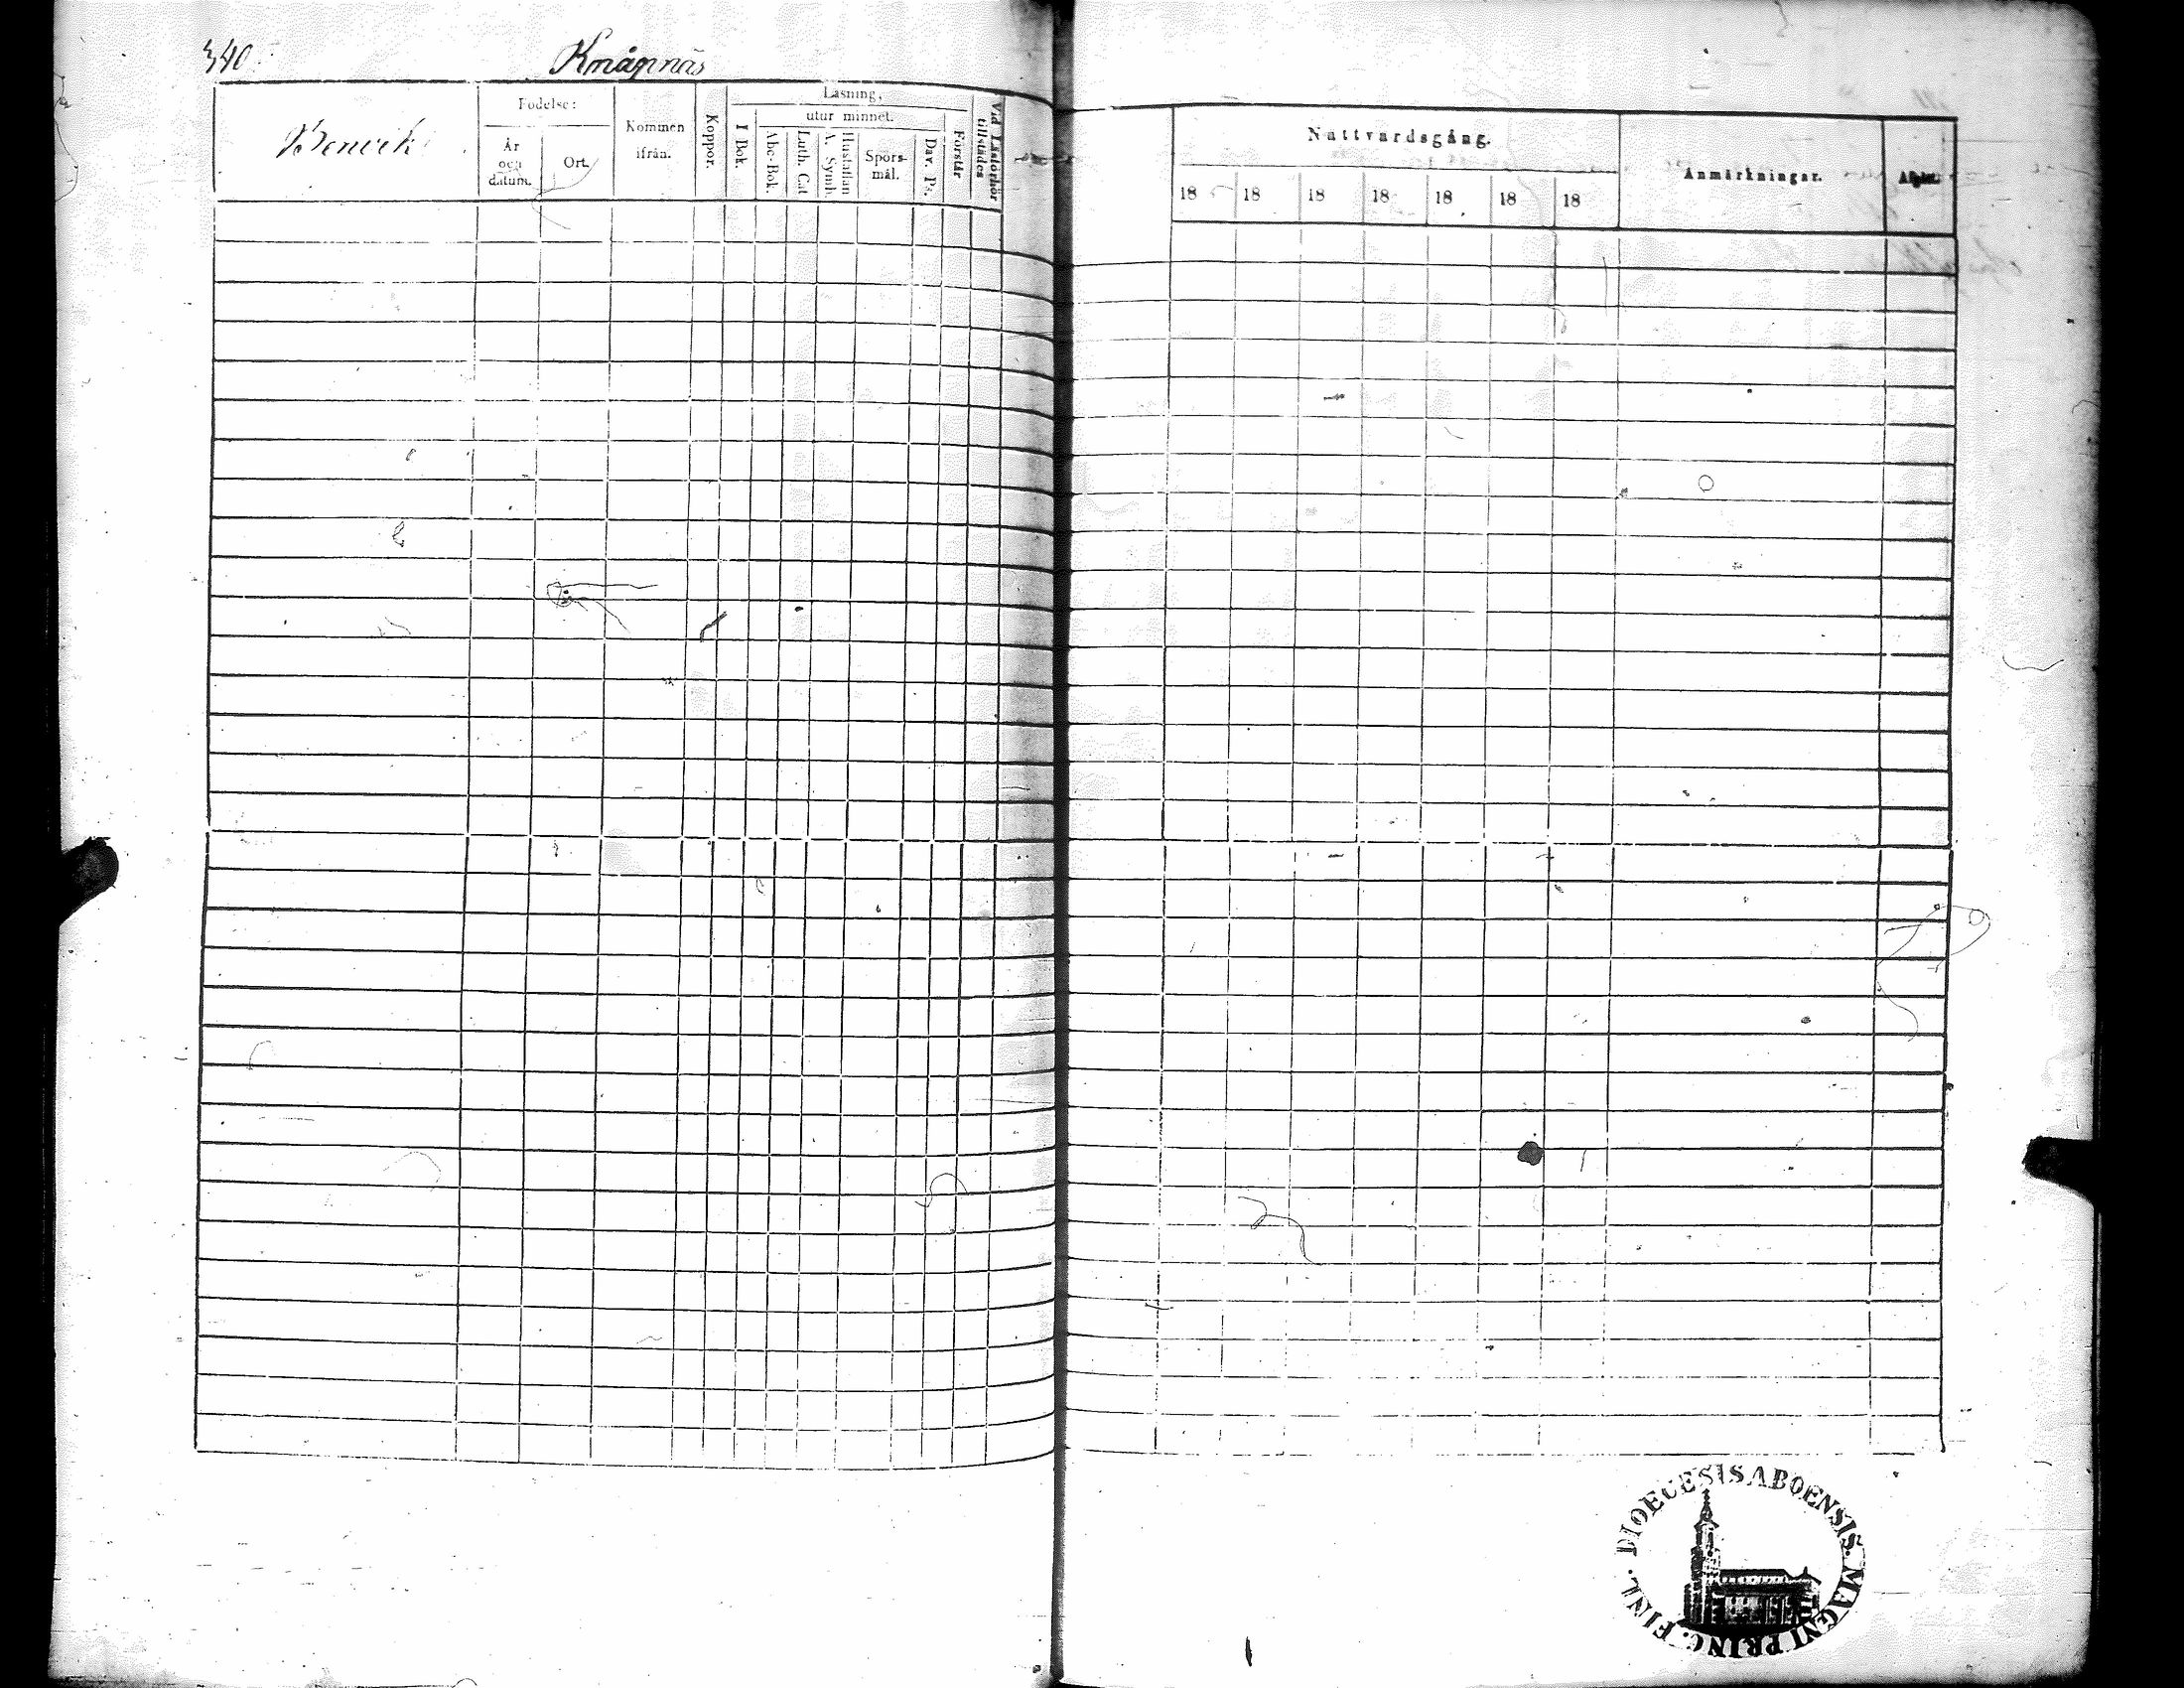 340.
Knåpnäs
Benvik
Födelse:
År
och
datum.
Ort.
Kommen
ifrån.
Koppor.
Läsning,
I Bok.
utur minnet.
Abc-Bok.
Luth. Cat
Hustaflan
A. Symb.
Spörs-
mål.
Dav. Ps.
Förstår
Vid Läsförhör
tillstädes
Nattvardsgång.
18 18 18 18 18 18 18
Anmärkningar.
DIOECESIS ABOENSIS. MAGNI PRINC. FINL.